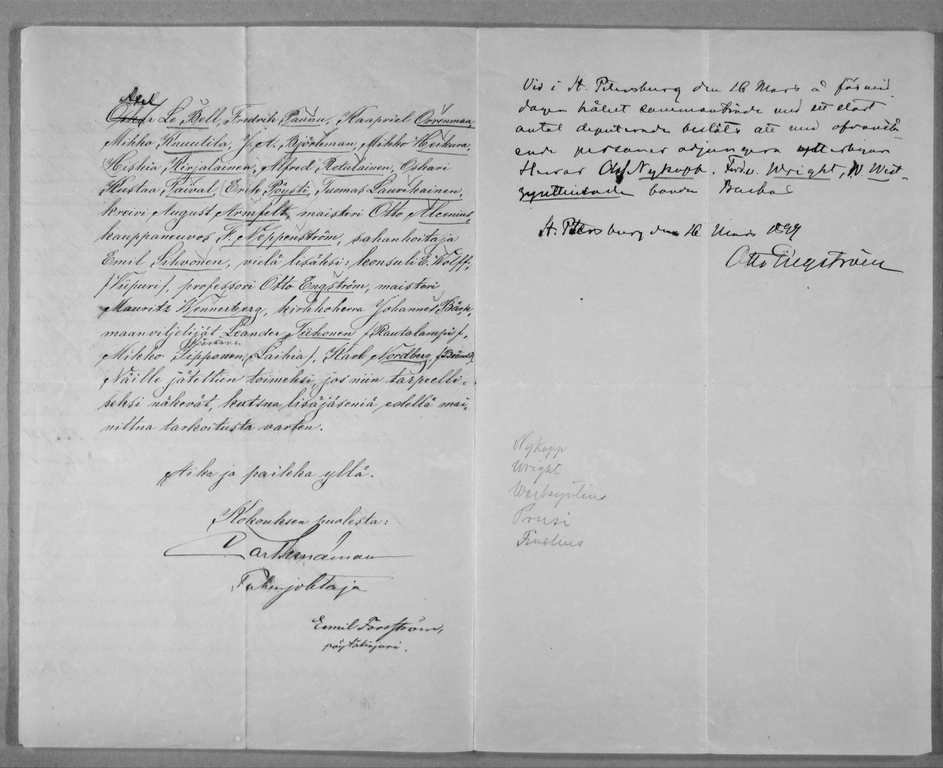 Axel
Le Bell, Fredrik Pannu, Kaapriel Orrenmaa,
Mihko Knuutila, J. A. Björkman, Mihko Heikura,
Heskia Kirjalainen, Alfred Retulainen, Oskari
Kustaa Raival, Erik Pöysti, Tuomas Laurikainen,
kreivi August Armfelt, maisteri Otto Alcenius,
kauppaneuvos F. Neppenström, sahanhoitaja
Emil Sihvonen, vielä lisäksi: konsuli E. Wolff,
/Viipuri/, professori Otto Engström, maisteri
Mauritz Wennerberg, kirkkoherra Johannes Bäck,
maanviljelijät Leander Tiihonen /Rautalampi/,
Mihko Sipponen /Laihia/, Karl Nordberg /Brändö/,
Näille jätettiin toimeksi, jos niin tarpeelli-
seksi näkevät, kutsua lisäjäseniä edellä mai-
nittua tarkoitusta varten.
Aika ja paikka yllä.
Kokouksen puolesta:
Puheenjohtaja
Emil Forsström,
pöytäkirjuri.
Vid i St. Petersburg den 16 Mars å förmid-
dagen hållet sammanträde med ett stort
antal deputerade beslöts att med ofvanstå-
ende personer adjungera ytterligare
Herrar Nykopp, Ferd. Wright, W
bonden
St. Petersburg den 16 Mars 1899
Otto Engström
Nykopp
Wright